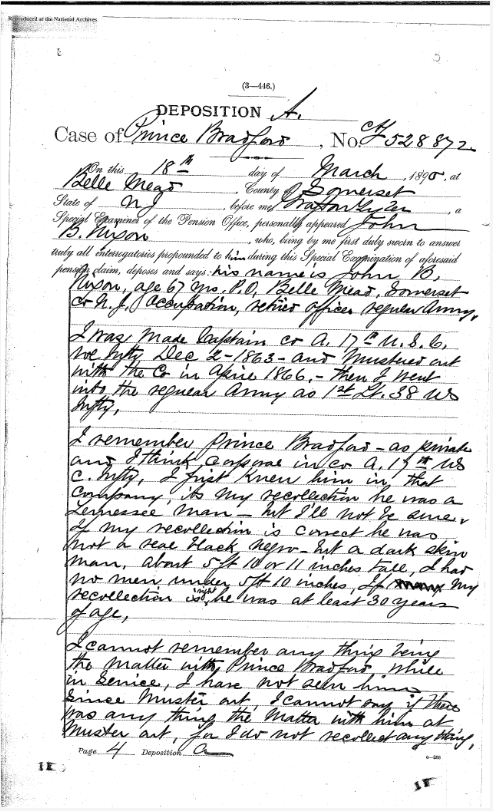 Reproduced at the National Archives
(3—446.)
DEPOSITION A.
Case of Prince Bradford, No. 528872
On this 18th day of March, 1890, at
Belle Mead, County of Somerset
State of N J, before me, a
Special Examiner of the Pension Office, personally appeared John
B. Nixon, who, being by me first duly sworn to answer
truly all interrogatories propounded to him during this Special Examination of aforesaid
pension claim, deposes and says: his name is John B.
Nixon, age 67 yrs, P.O. Belle Mead, Somerset
co N. J. Occupation, retired officer regular Army.
I was made Captain co A. 17th U. S. C.
Infty Dec 2-1863- and mustered out
with the Co in April 1866,- then I went
into the regular Army as 1st Lt. 38 US
Infty,
I remember Prince Bradford - as private
and I think Corporal in co A, 17th US
C. Infty, I first knew him in that
Company, its my recollection he was a
Tennessee man - but I'll not be sure.
If my recollection is correct he was
not a real black negro - but a dark skin
man, about 5 ft 10 or 11 inches tall, I had
no men under 5 ft 10 inches, If my
recollection is right, he was at least 30 years
of age,
I cannot remember any thing being
the matter with Prince Bradford while
in Service, I have not seen him
Since Muster out, I cannot say if there
was any thing the Matter with him at
Muster out, for I do not recollect any thing,
Page 4 Deposition A
6—295